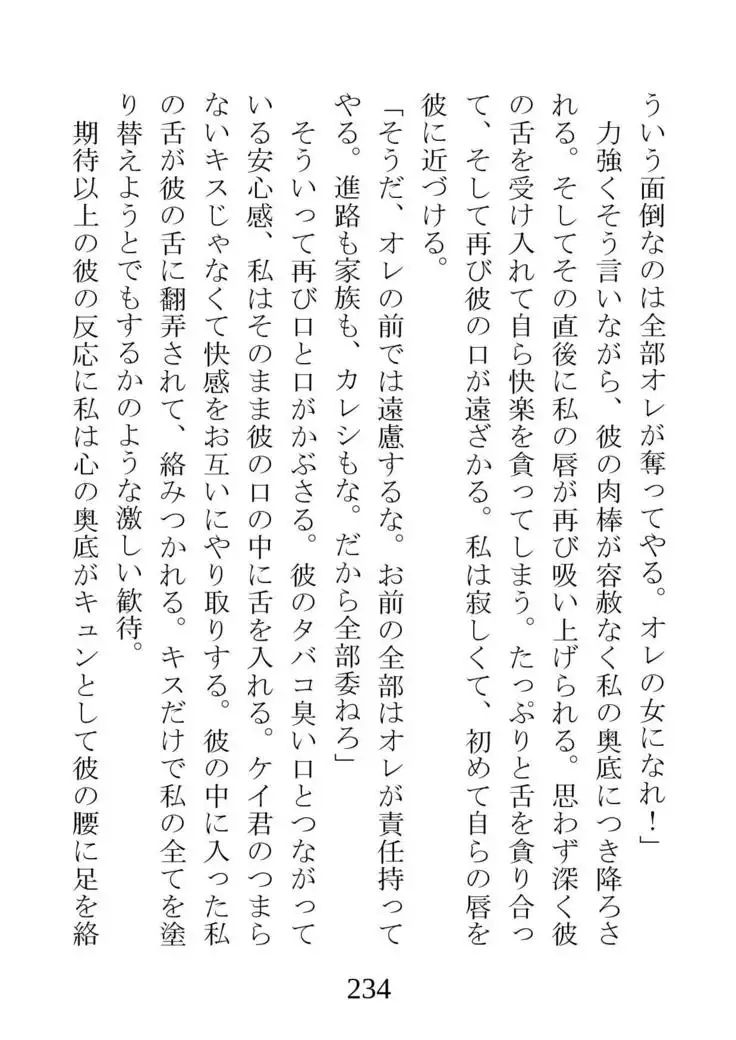 ういう面倒なのは全部オレが奪ってやる。オレの女になれ！」
　力強くそう言いながら、彼の肉棒が容赦なく私の奥底につき降ろさ
れる。そしてその直後に私の唇が再び吸い上げられる。思わず深く彼
の舌を受け入れて自ら快楽を貪ってしまう。たっぷりと舌を貪り合っ
て、そして再び彼の口が遠ざかる。私は寂しくて、初めて自らの唇を
彼に近づける。
「そうだ、オレの前では遠慮するな。お前の全部はオレが責任持って
やる。進路も家族も、カレシもな。だから全部委ねろ」
　そういって再び口と口がかぶさる。彼のタバコ臭い口とつながって
いる安心感、私はそのまま彼の口の中に舌を入れる。ケイ君のつまら
ないキスじゃなくて快感をお互いにやり取りする。彼の中に入った私
の舌が彼の舌に翻弄されて、絡みつかれる。キスだけで私の全てを塗
り替えようとでもするかのような激しい歓待。
　期待以上の彼の反応に私は心の奥底がキュンとして彼の腰に足を絡
234